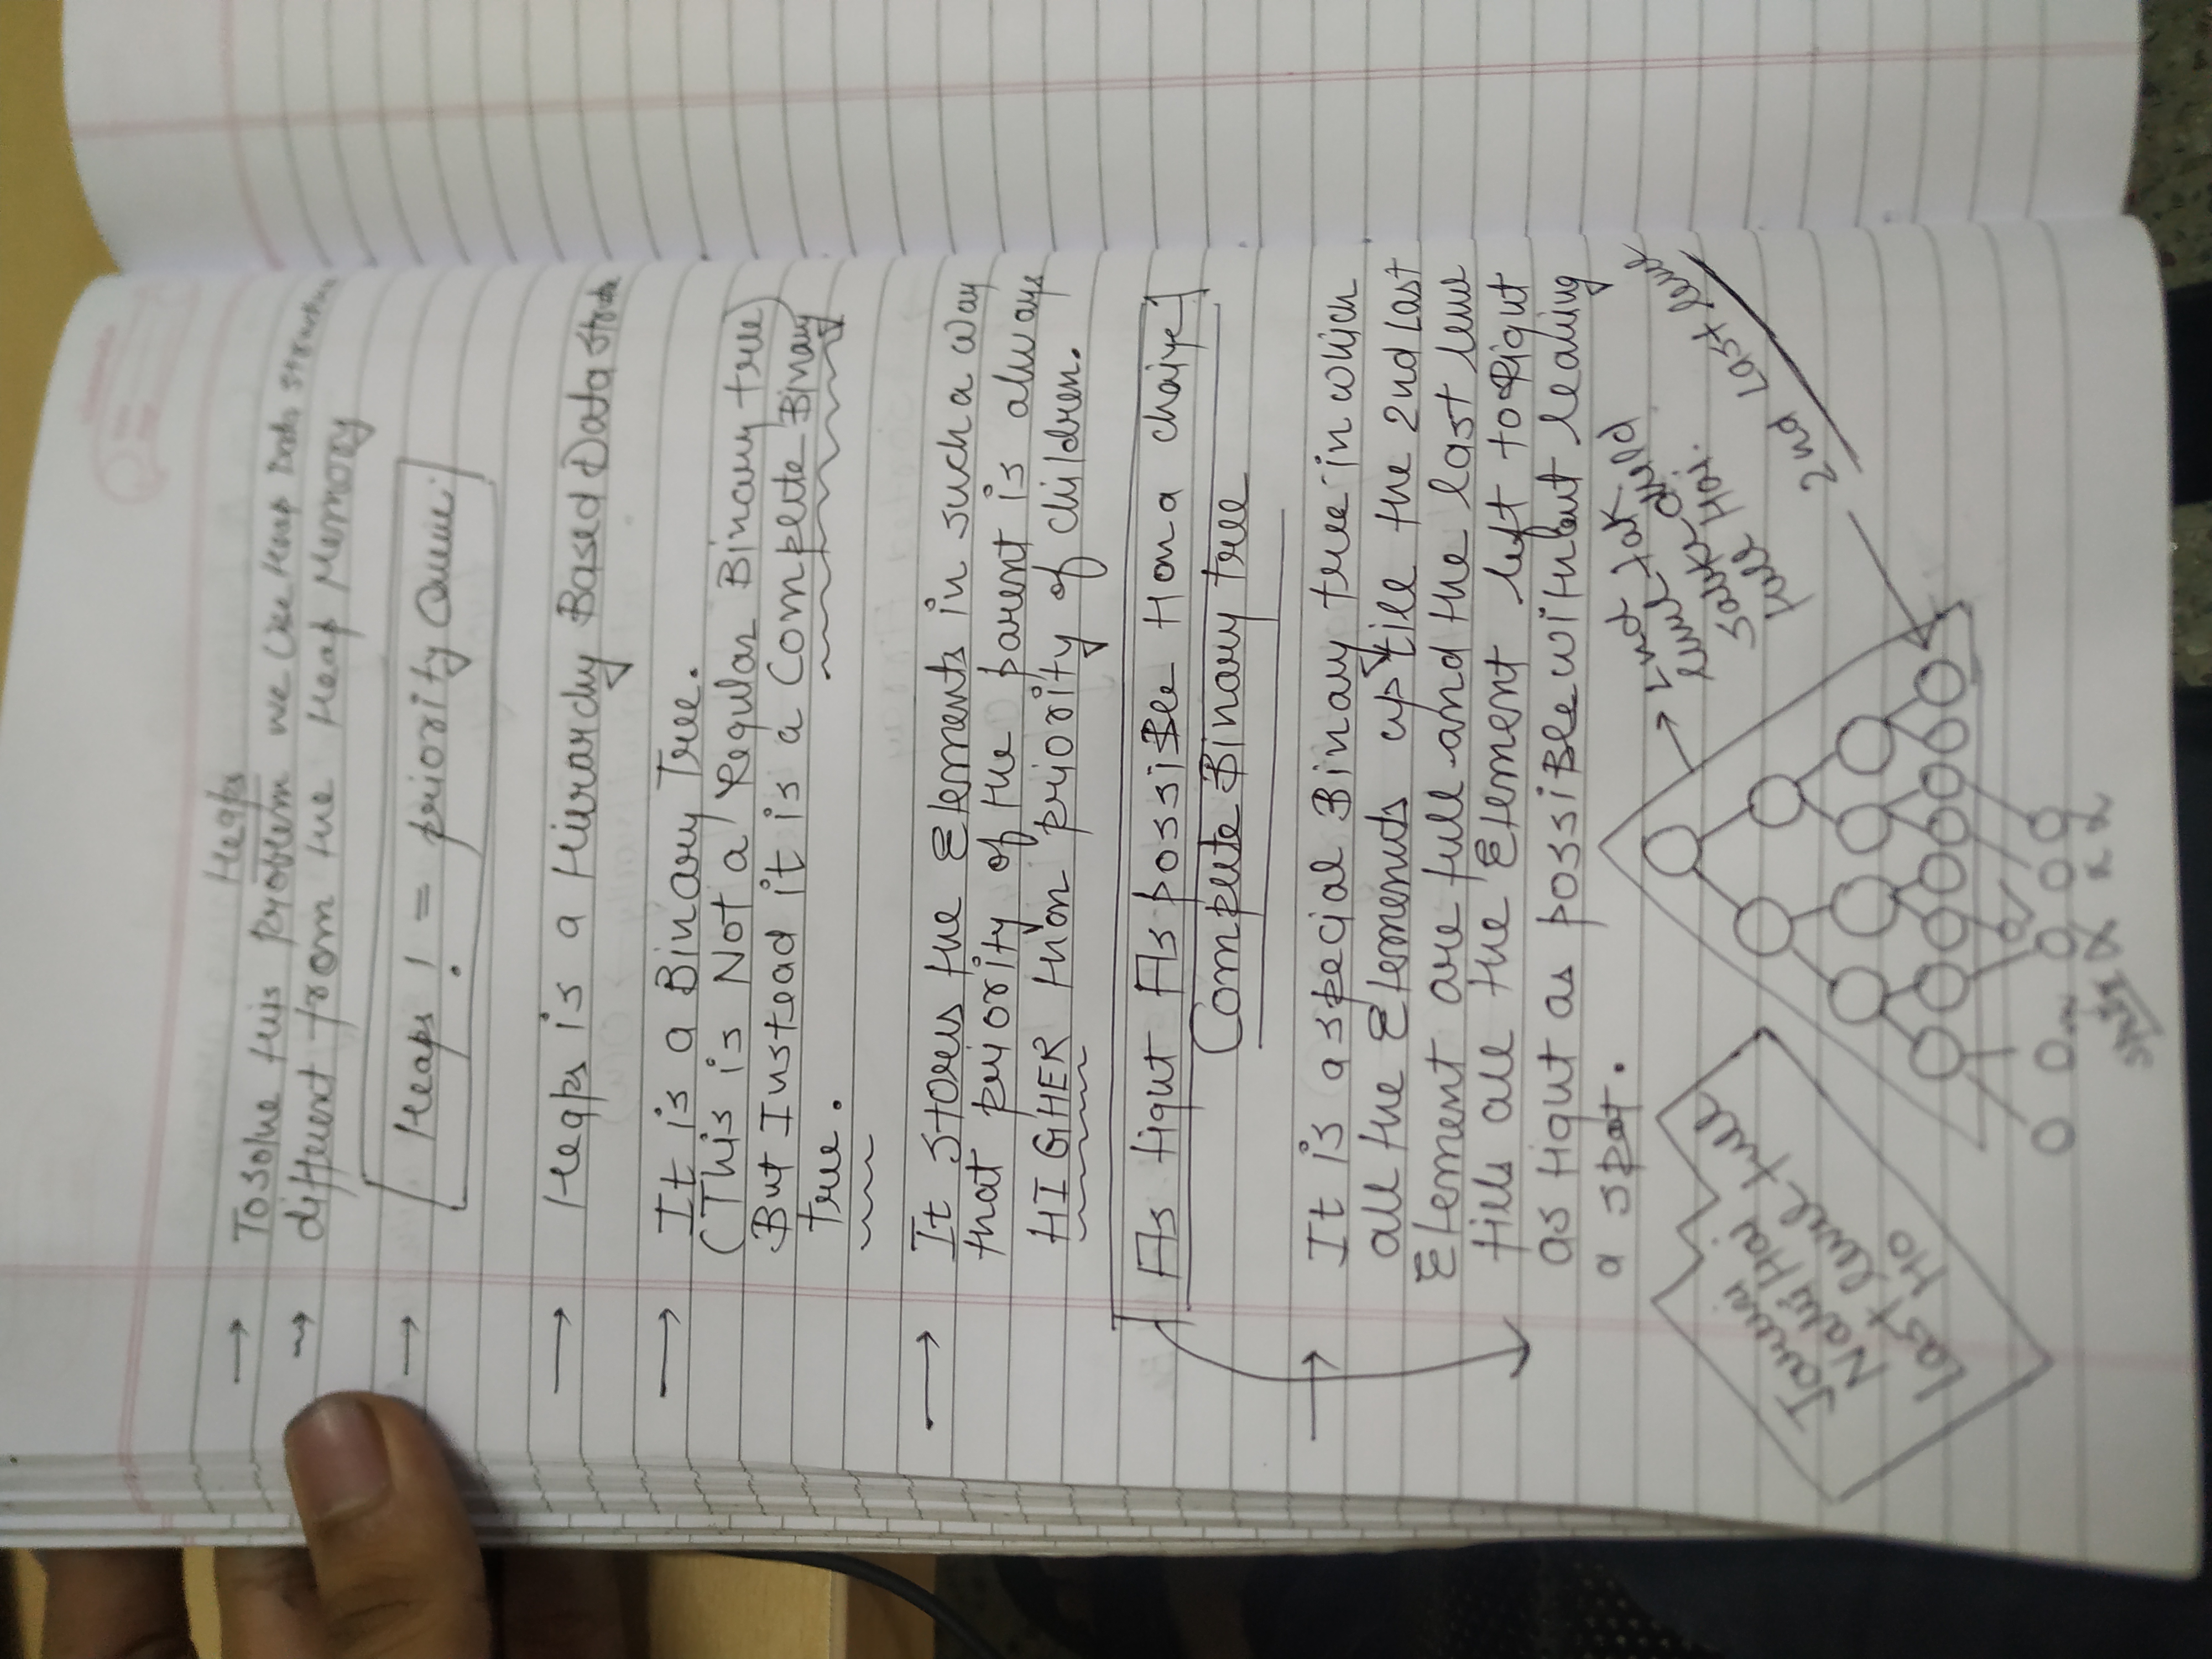 Heaps
→ To solve this problem we Use Heap Data structure
→ different from the Heap Memory
→ Heaps != priority Queue
→ Heaps is a Hierarchy Based Data Structure
→ It is a Binary Tree.
(This is Not a regular Binary tree)
But Instead it is a Complete Binary
tree.
→ It stores the Elements in such a way
that priority of the parent is always
HIGHER than priority of children.
As tight As possible Hona chaiye
Complete Binary tree
→ It is a special Binary tree in which
all the Elements up till the 2nd last
Element are full and the last level
fills all the Element left to Right
as tight as possible without leaving
a spot.
2nd
level tak
sabke child
full Hai.
2nd Last level
Jaruri
Nahi Hai
Last level full
Ho